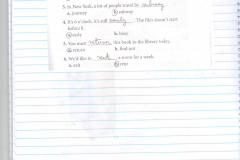 3. In New York, a lot of people travel by subway
a. journey b. subway
4. It's 6 o'clock, it's still early. The film doesn't start
before 8.
a. early b. busy
5. You must return this book to the library today.
a. return b. find out
6. We'd like to rent a room for a week.
a. exit b. rent